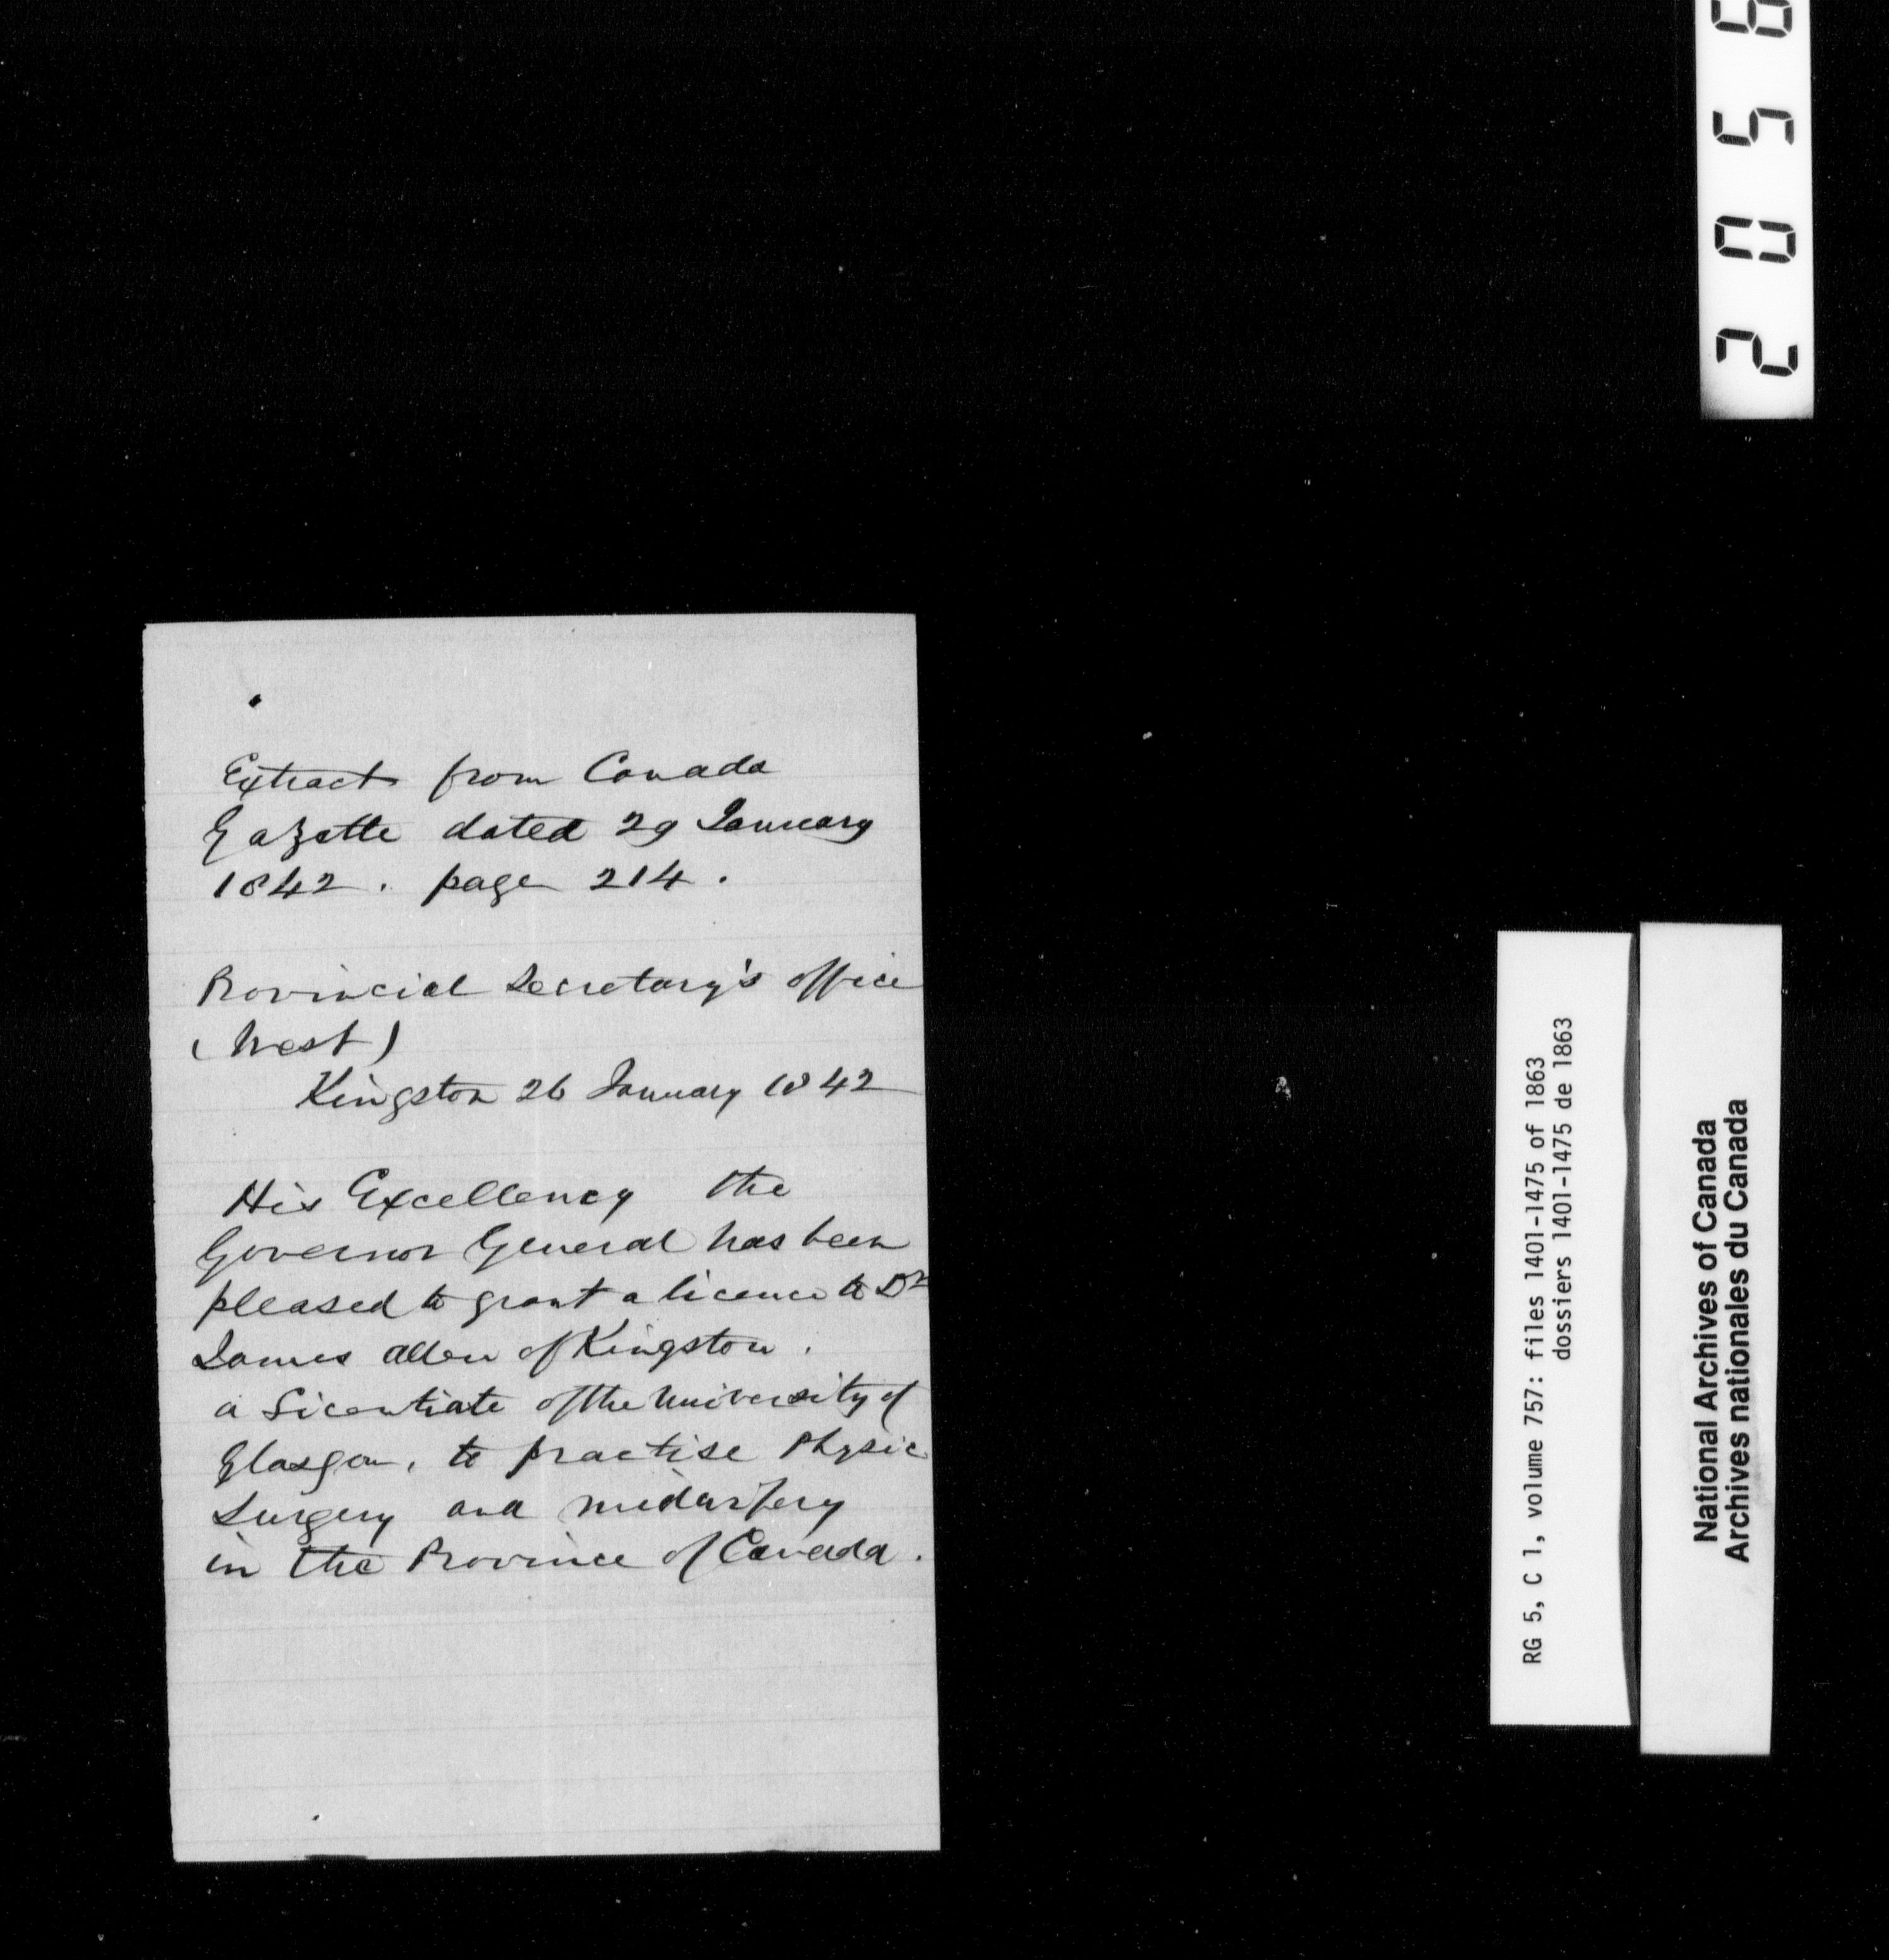 Extract from Canada
Gazette dated 29 January
1842. page 214.
Provincial Secretary's office
(West)
Kingston 26 January 1842
His Excellency the
Governor General has been
pleased to grant a licence to Dr
James Allen of Kingston.
a Licentiate of the University of
Glasgow, to practise Physic
Surgery and midwifery
in the Province of Canada.
RG 5, C 1, volume 757: files 1401-1475 of 1863
dossiers 1401-1475 de 1863
National Archives of Canada
Archives nationales du Canada
2058